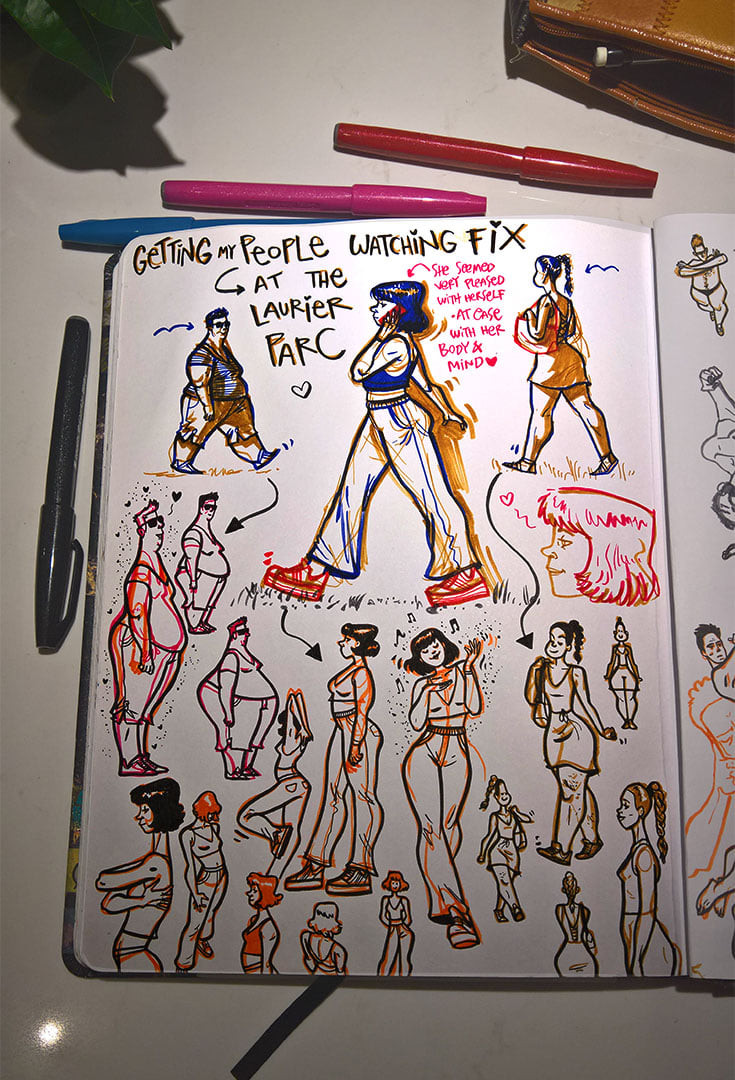 GETTING MY PEOPLE WATCHING FIX
AT THE
LAURIER
PARC
SHE SEEMED
VERY PLEASED
WITH HERSELF
- AT EASE
WITH HER
BODY &
MIND